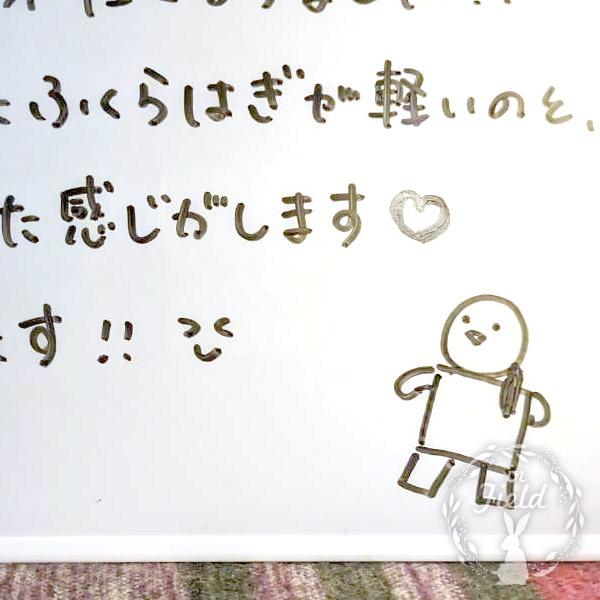 ふくらはぎが軽いのと、
た感じがします♡
ます!!
in
Field